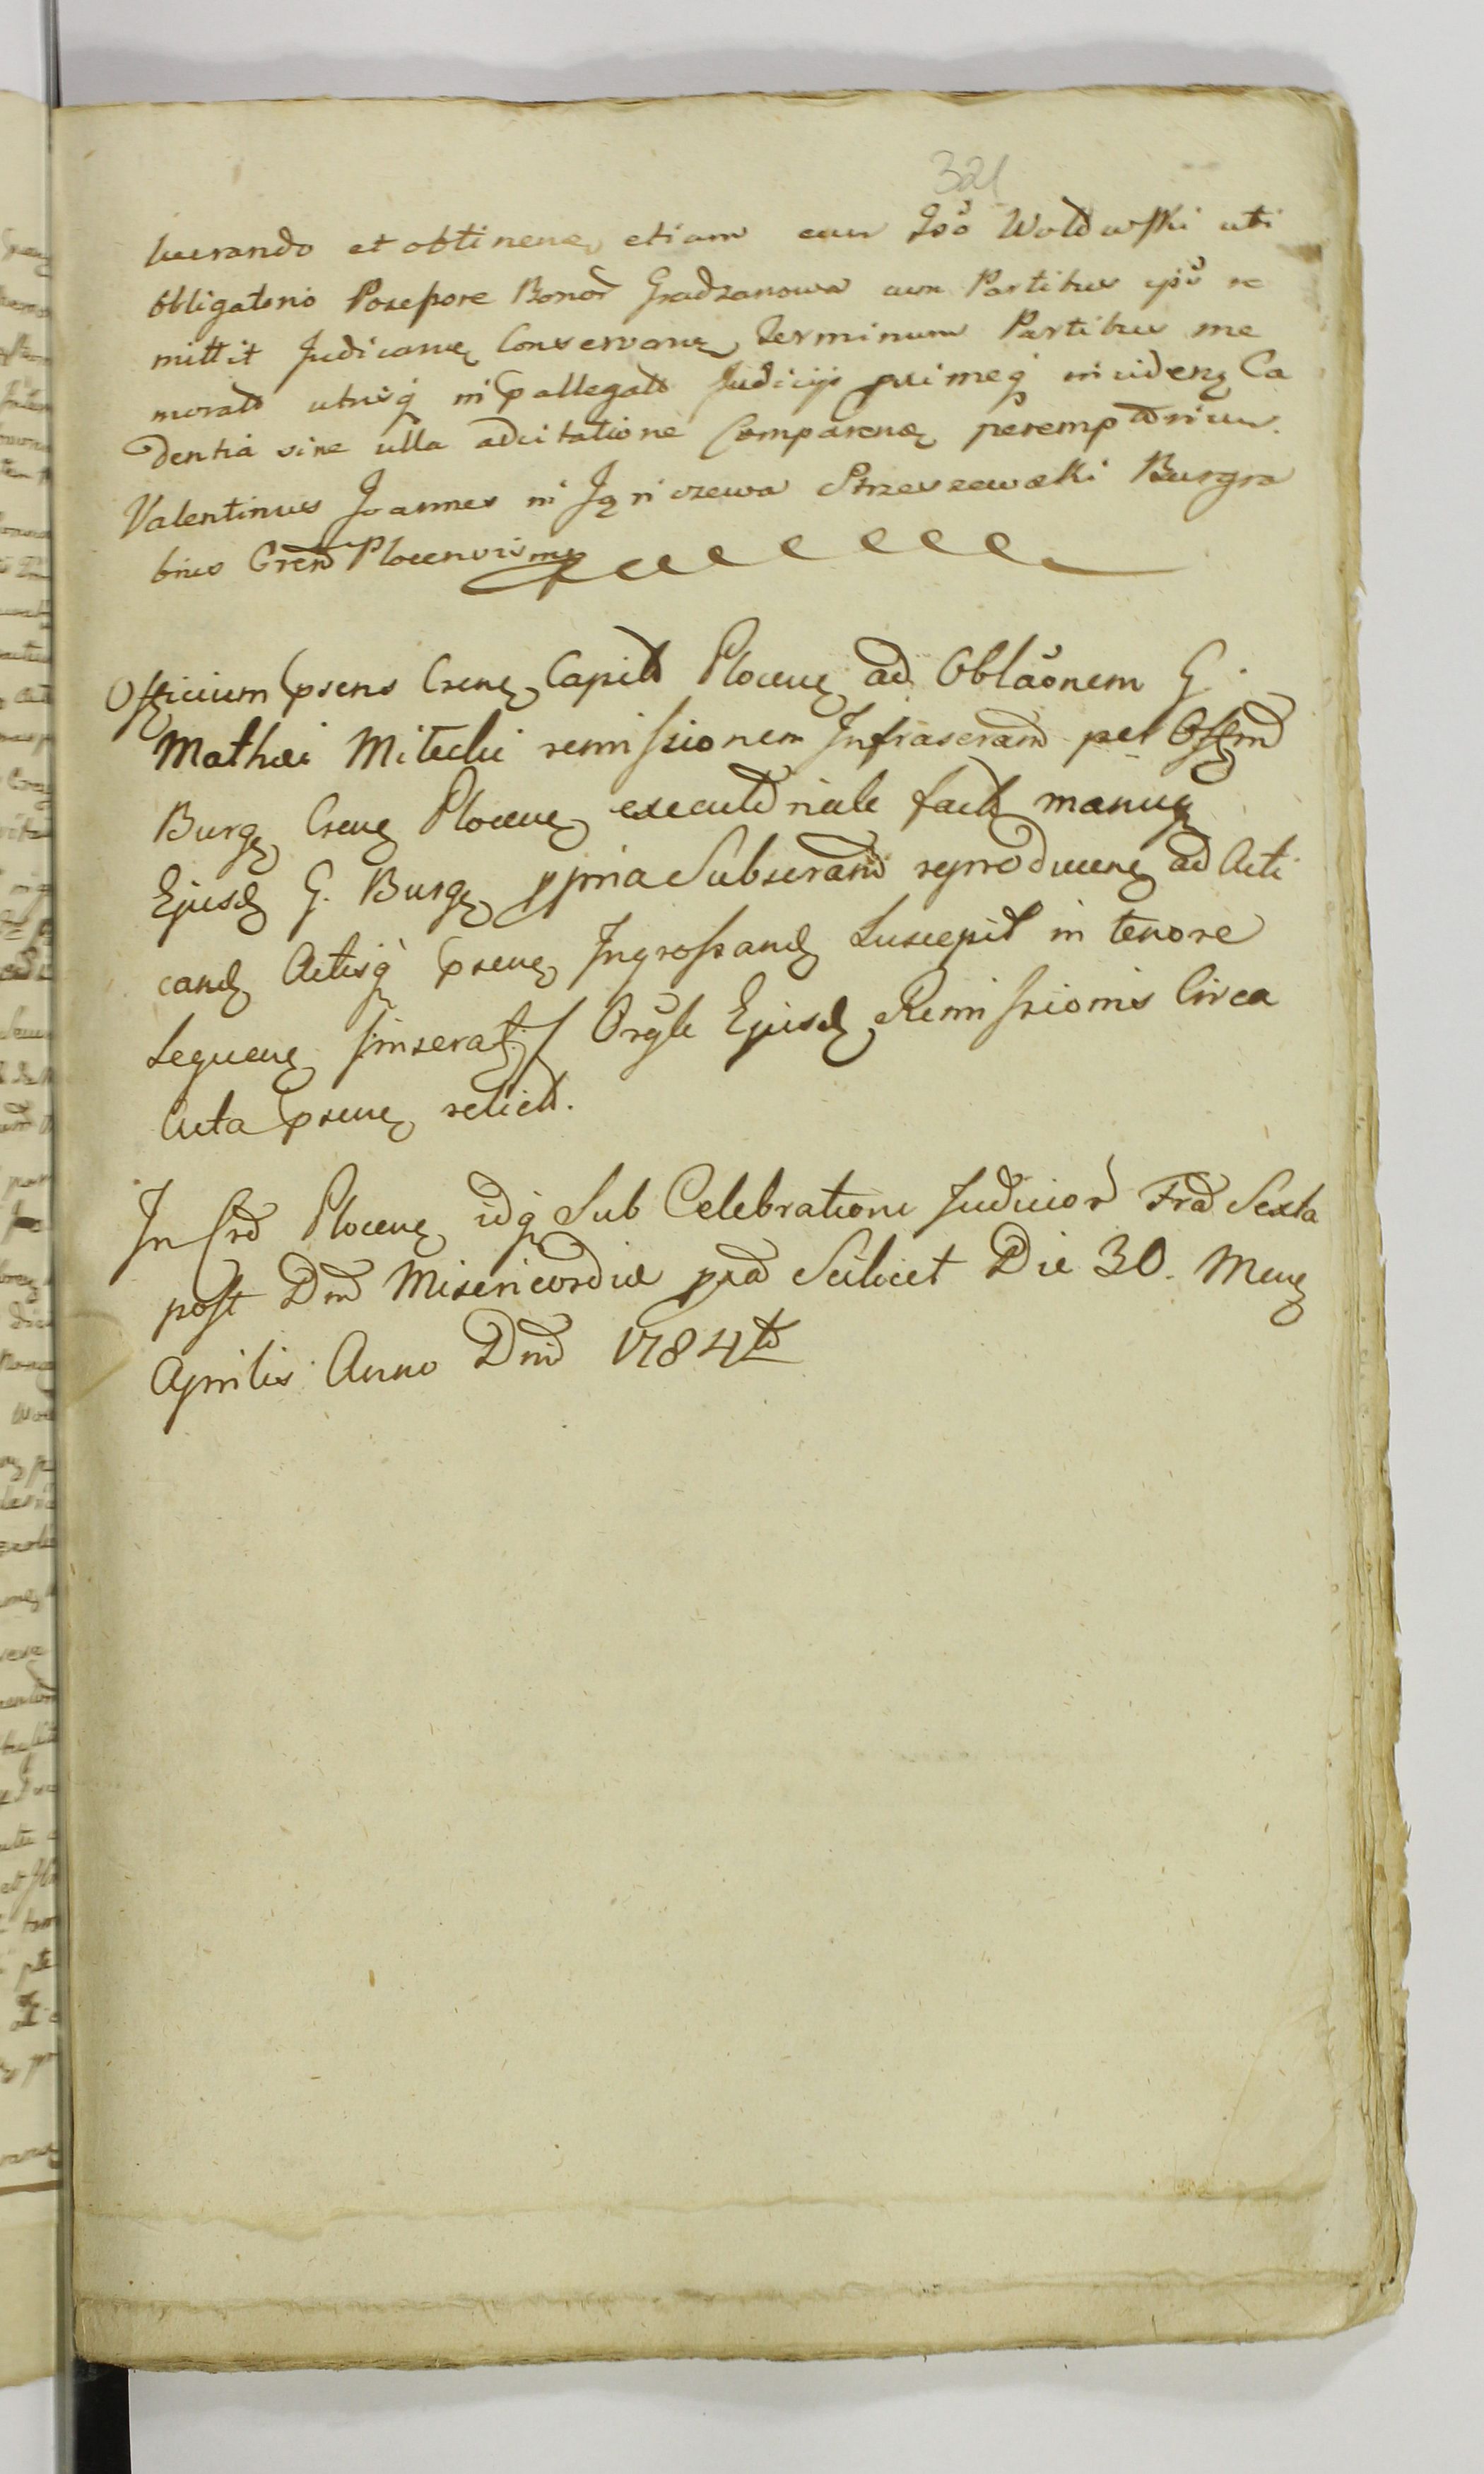 321
lucrando et obtinenđ etiam cum Gso Wołdowski uti
obligatorio Possessore Bonor Gradzanowa cum Partibus ipso re
mittit Judicanđ Conservanđ terminum Partibus me
morat utrisq in pallegat Judicijs primeq incidenđ Ca
dentia sine ulla adcitatione Comparenđ peremptorium.
Valentinus Joannes in Jęniszewa Strzeszewski Burgra
bius Gren Plocensis mp
Officium prens Crense Capit Plocen ad Oblaonem G.
Mathæi Mitecki remissionem Infrascram per Offm
Burg Cren Plocen executoriale fact manuq
Ejusd G. Burg ppria Subscram reproducen ad Acti
cand Actisq prens Ingrossand Suscepit in tenore
Sequen /inserat/ Orgle Ejusd Remissionis Circa
Acta prens relict.
In Crd Plocen idq Sub Celebratione Judicior Fra Sexta
post Dnd Misericordiæ pxa Scilicet Die 30. Mens
Aprilis Anno Dni 1784to